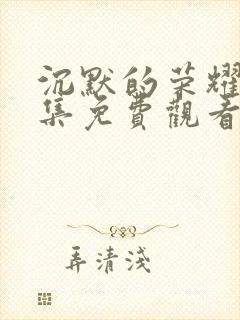 沉默的荣耀
集免費觀看
弄清淺